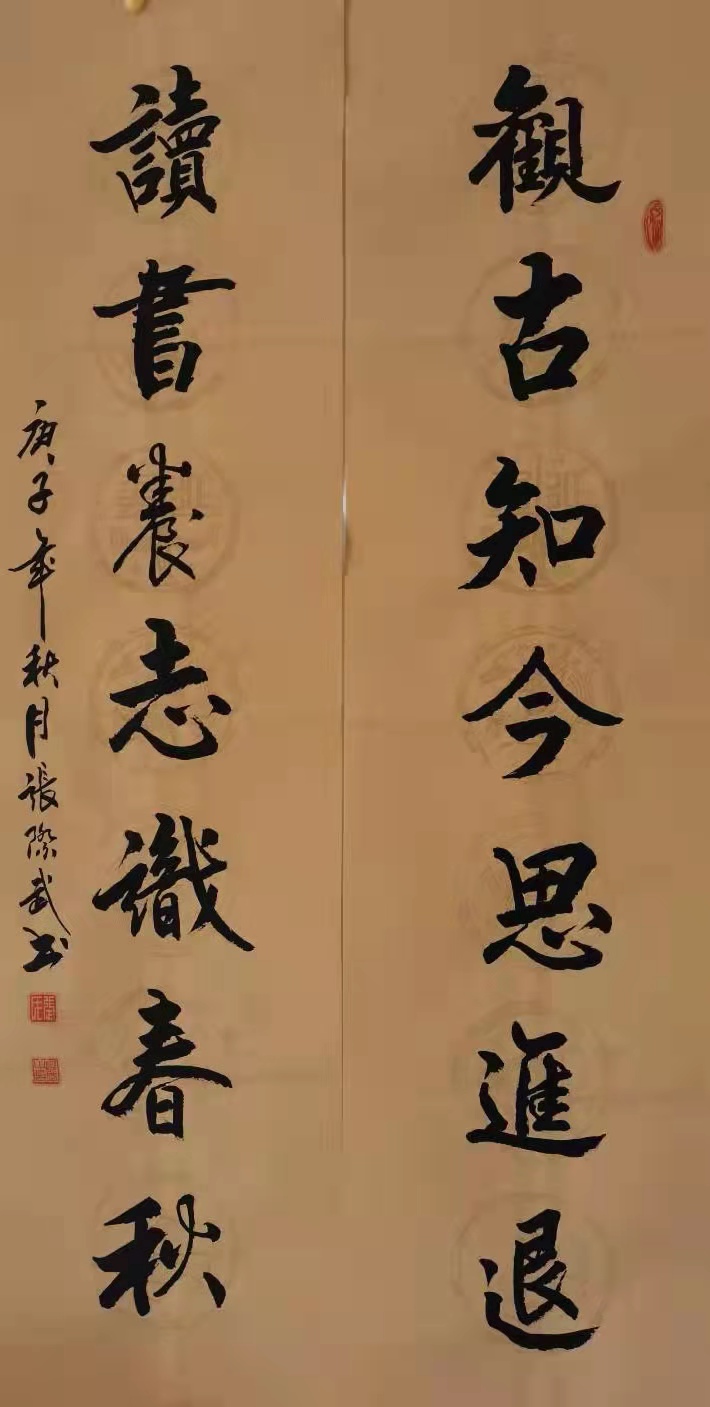 觀古知今思進退
讀書養志識春秋
庚子年秋月張際武书